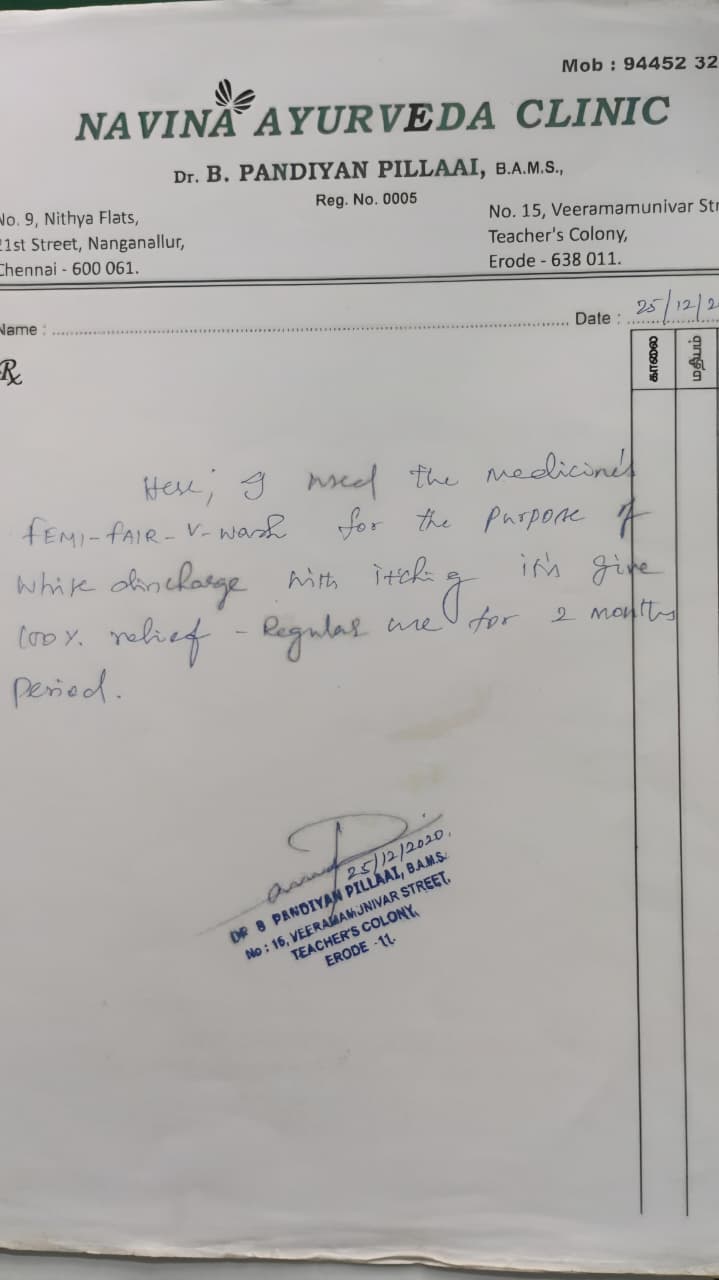 Mob : 94452 32
NAVINA AYURVEDA CLINIC
Dr. B. PANDIYAN PILLAAI, B.A.M.S.,
Reg. No. 0005
No. 9, Nithya Flats,
21st Street, Nanganallur,
Chennai - 600 061.
No. 15, Veeramamunivar Str
Teacher's Colony,
Erode - 638 011.
Name :
Date : 25/12/2
Rx
காலை
மதியம்
Here; I used the medicine's
FEMI-FAIR-V-Wash for the purpose of
White discharge with itching it's give
100%. relief - Regular use for 2 months
period.
25/12/2020.
DR B PANDIYAN PILLAAI, B.A.M.S.
No : 15, VEERAMAMUNIVAR STREET,
TEACHER'S COLONY,
ERODE -11.